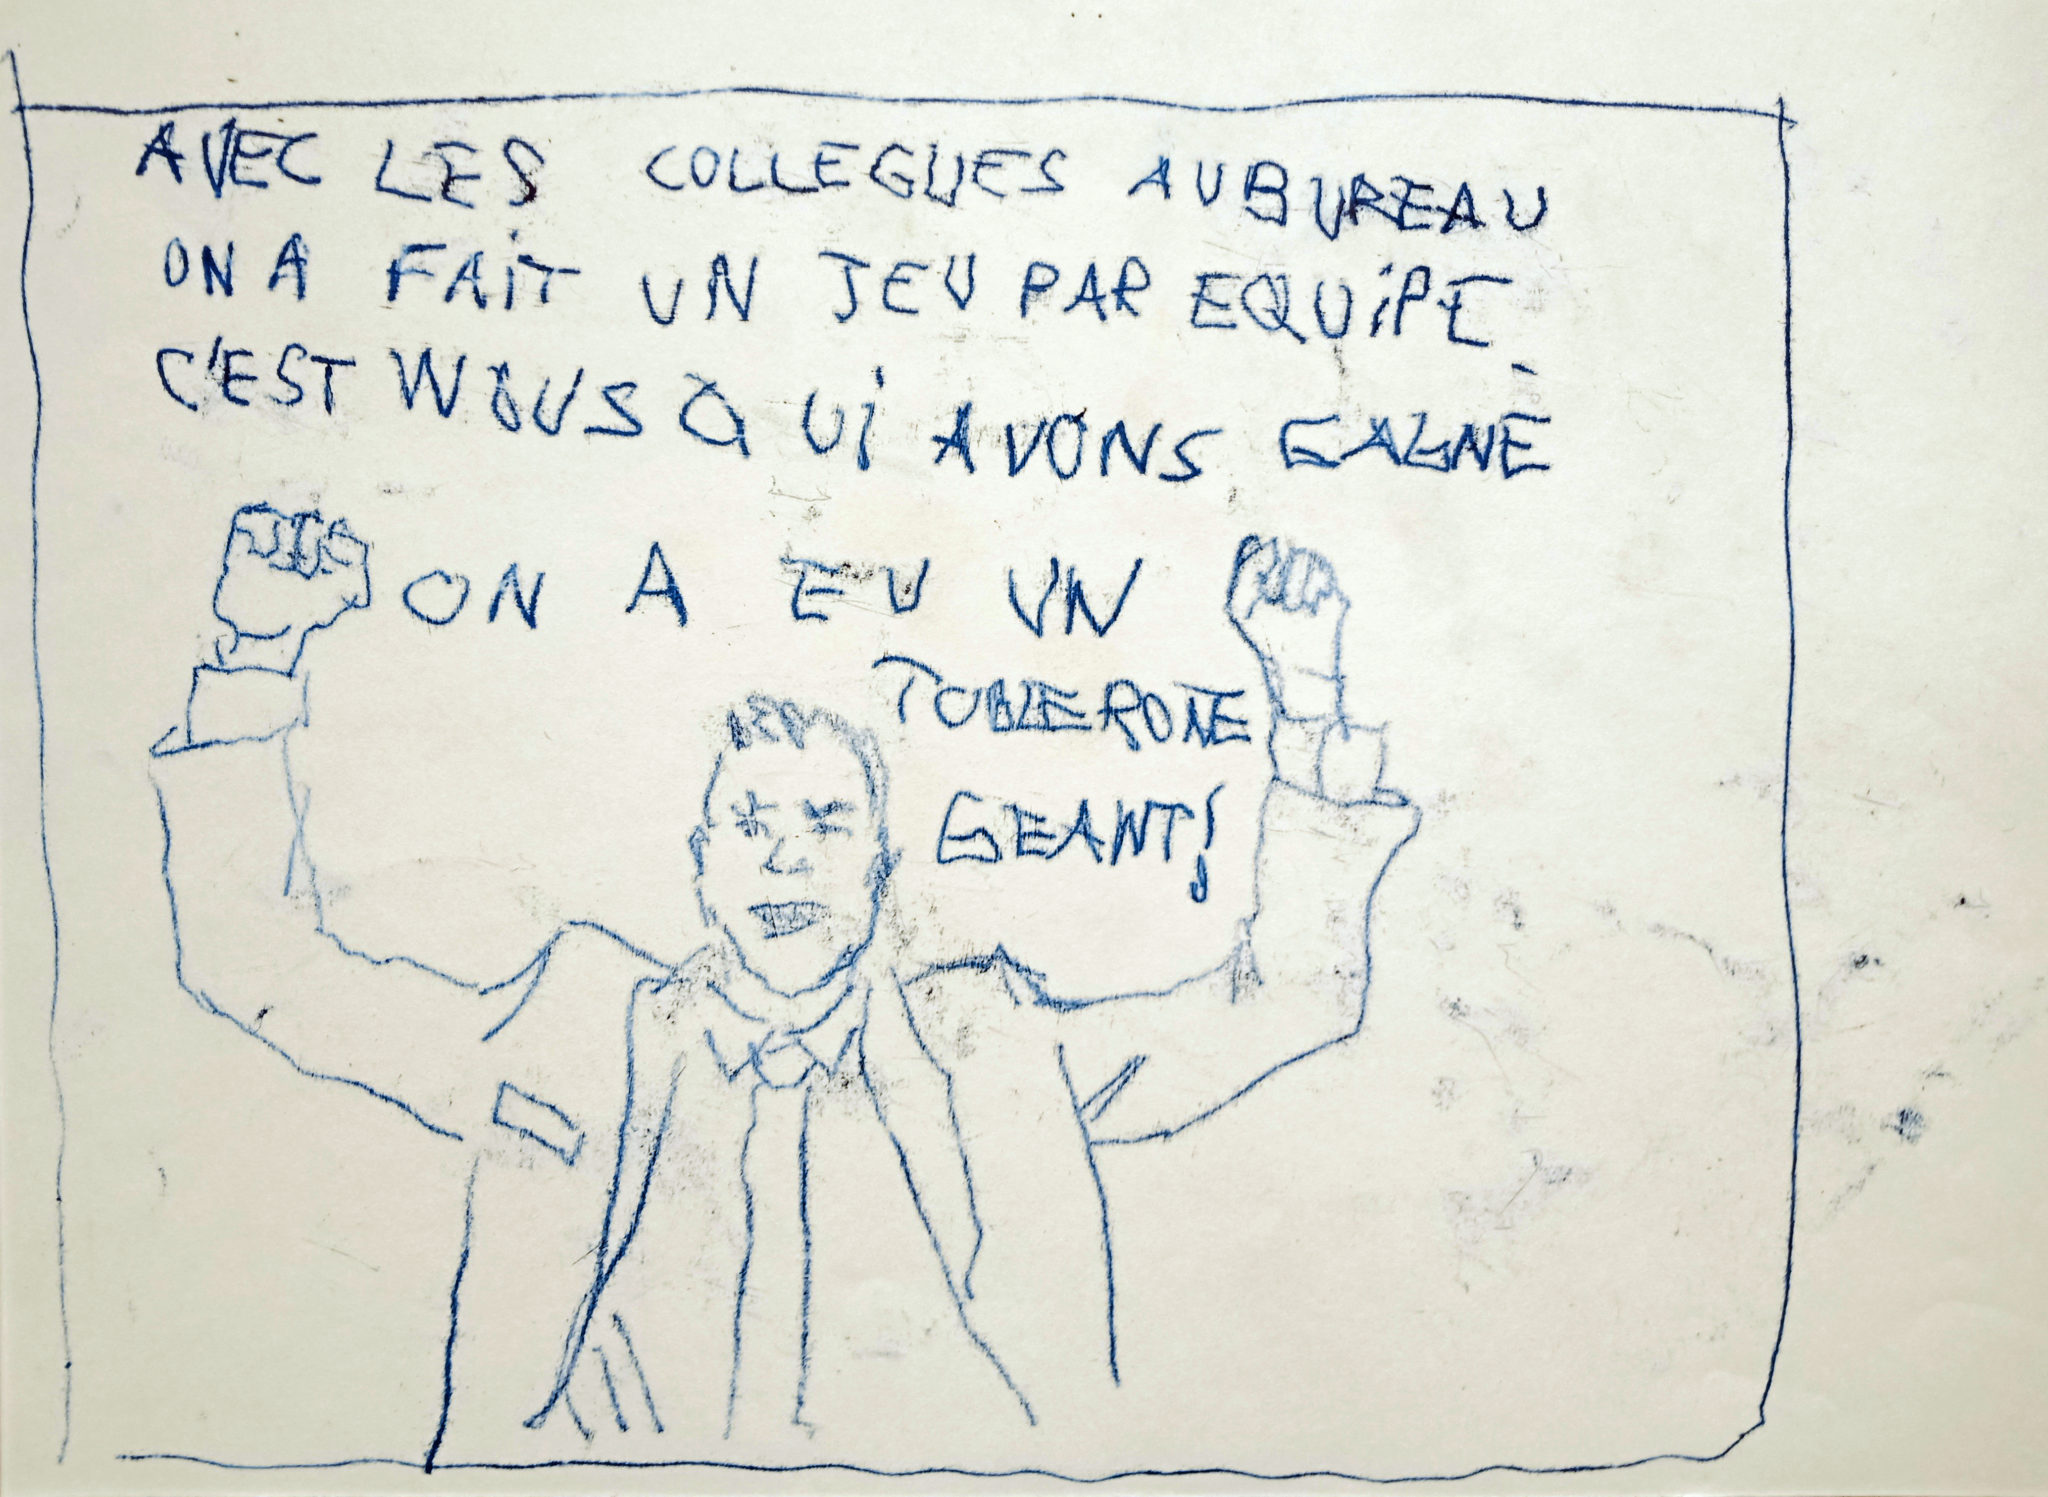 AVEC LES COLLEGUES AU BUREAU
ON A FAIT UN JEU PAR EQUIPE.
C'EST NOUS QUI AVONS GAGNÉ
ON A EU UN
TOBLERONE
GEANT!